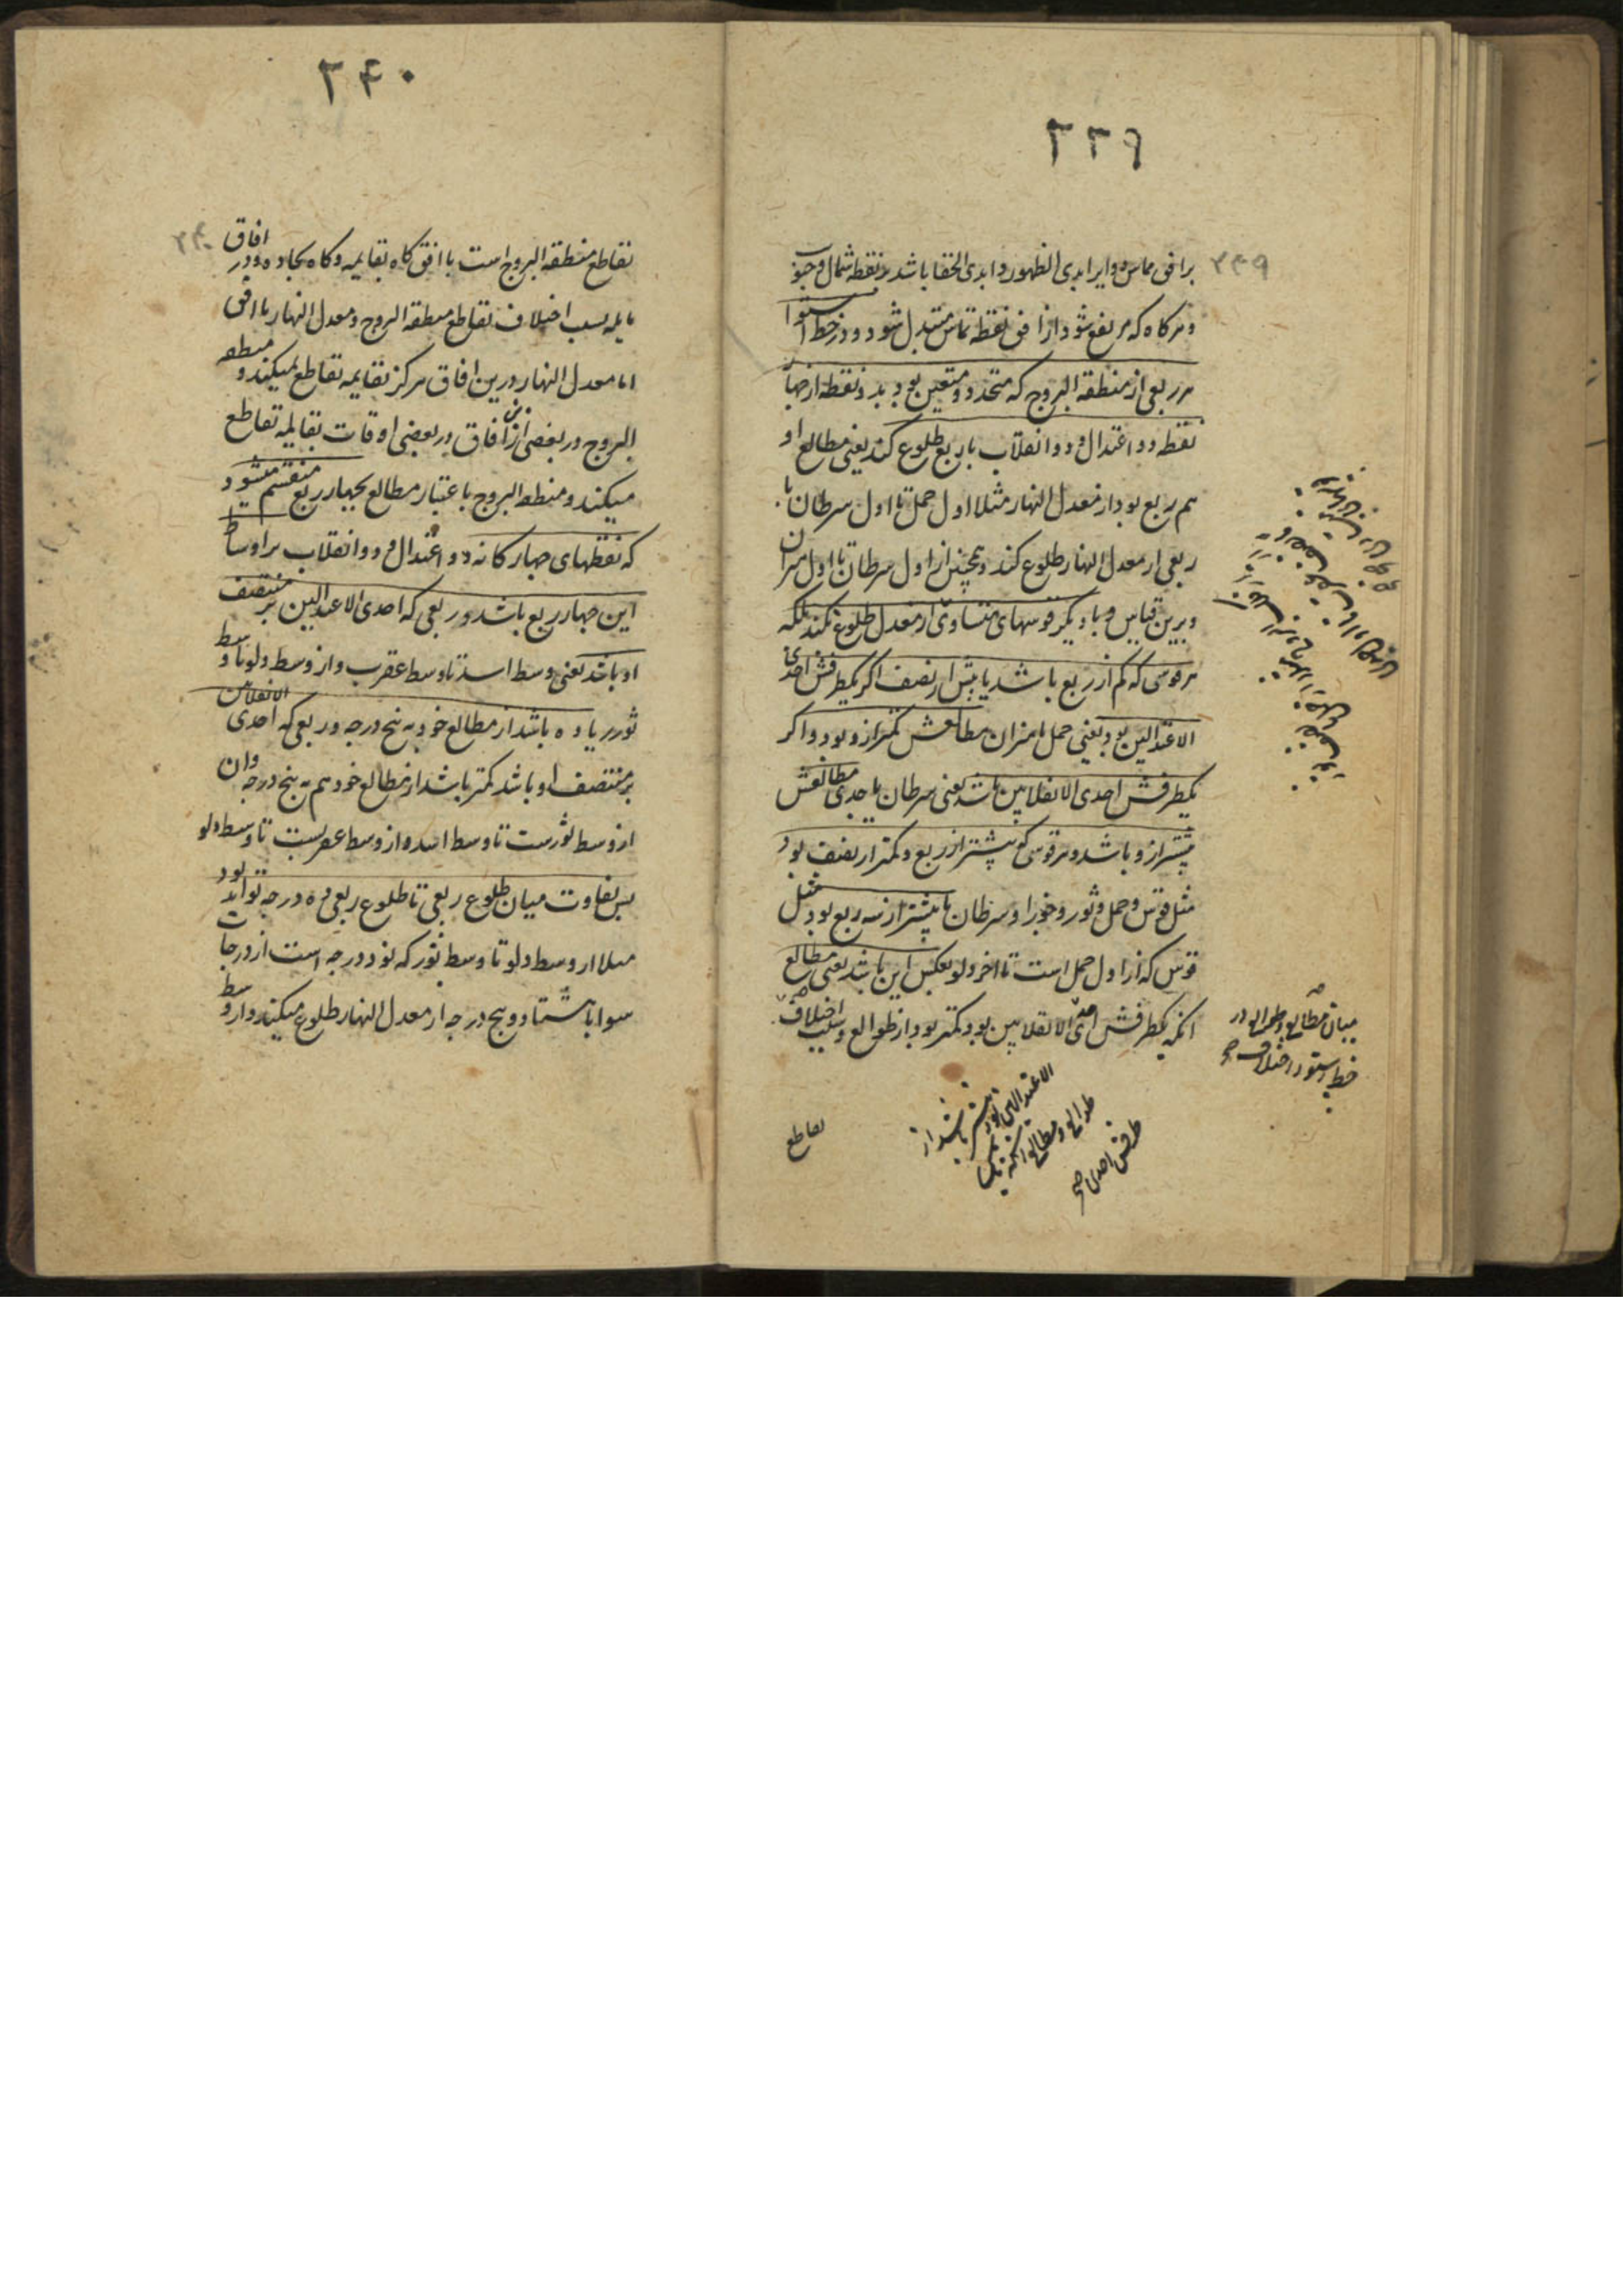 ۲۳۹
۲۳۹
بر افق مماس دوایر ابدی الظهور و ابدی الخفا باشد بر نقطه شمال و جنوب
و هرگاه که مرتفع شود از افق نقطه تماس متبدل شود و در خط استوا
هر ربعی از منطقة البروج که متحدد و متعین بود بدو نقطه از چهار
نقطه دو اعتدال و دو انقلاب با ربع طلوع کند یعنی مطالع او
هم ربع بود از معدل النهار مثلا اول حمل تا اول سرطان با
ربعی از معدل النهار طلوع کند و همچنین از اول سرطان تا اول میزان
و برین قیاس و با دیگر قوسهای متساوی از معدل طلوع نکند بلکه
هر قوسی که کم از ربع باشد یا بیش از نصف اگر یکطرفش احدی
الاعتدالین بود یعنی حمل یا میزان مطالعش کمتر ازو بود و اگر
یکطرفش احدی الانقلابین باشد یعنی سرطان یا جدی مطالعش
بیشتر ازو باشد و هر قوسی که بیشتر از ربع و کمتر از نصف بود
مثل قوس و حمل و ثور و جوزا و سرطان یا بیشتر از سه ربع بود مثل
قوس که از اول حمل است تا اخر دلو بعکس این باشد یعنی مطالع
انکه یکطرفش احدی الانقلابین بود کمتر بود از طوالع و سبب اختلاف
میان مطالع و طوالع در
خط استوا اختلاف
الاعتدالین بود بیشتر باشد از
طوالع و مطالع انکه یک
طرفش احدی
تقاطع
۲۴۰
۲۴۰
تقاطع منطقة البروج است با افق گاه بقایمه و گاه بحاده و در افاق
مایله بسبب اختلاف تقاطع منطقة البروج و معدل النهار با افق
اما معدل النهار درین افاق هرگز بقایمه تقاطع نمیکند و منطقه
البروج در بعضی ازین افاق در بعضی اوقات بقایمه تقاطع
میکند و منطقة البروج باعتبار مطالع بچهار ربع منقسم میشود
که نقطهای چهارگانه دو اعتدال و دو انقلاب بر اوساط
این چهار ربع باشد و ربعی که احدی الاعتدالین بر منتصف
او باشد یعنی وسط اسد تا وسط عقرب و از وسط دلو تا وسط
ثور زیاده باشد از مطالع خود به پنج درجه و ربعی که احدی الانقلابین
بر منتصف او باشد کمتر باشد از مطالع خود هم به پنج درجه و ان
از وسط ثورست تا وسط اسد و از وسط عقربست تا وسط دلو
پس تفاوت میان طلوع ربعی تا طلوع ربعی ده درجه تواند بود
مثلا از وسط دلو تا وسط ثور که نود درجه است از درجات
سوا با هشتاد و پنج درجه از معدل النهار طلوع میکند و از وسط